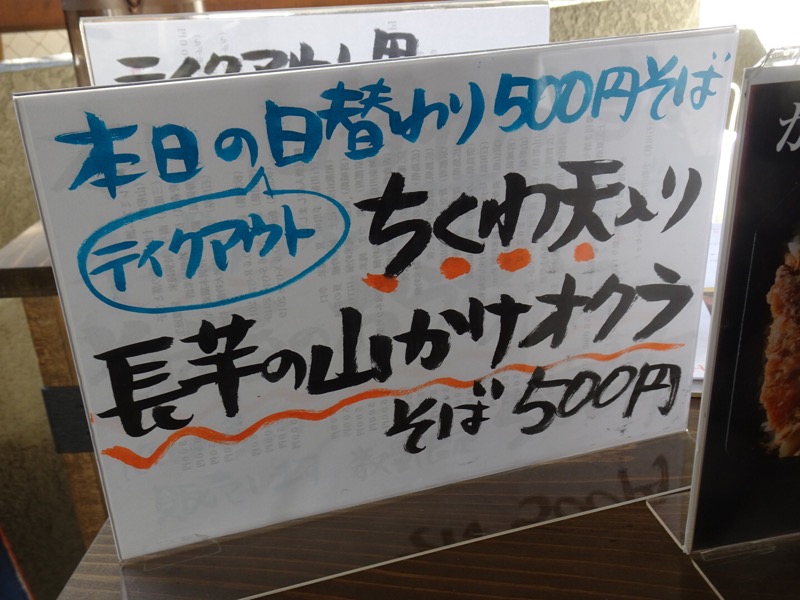 テイクアウト用
本日の日替わり500円そば
テイクアウト
ちくわ天入り
長芋の山かけオクラ
そば500円
か